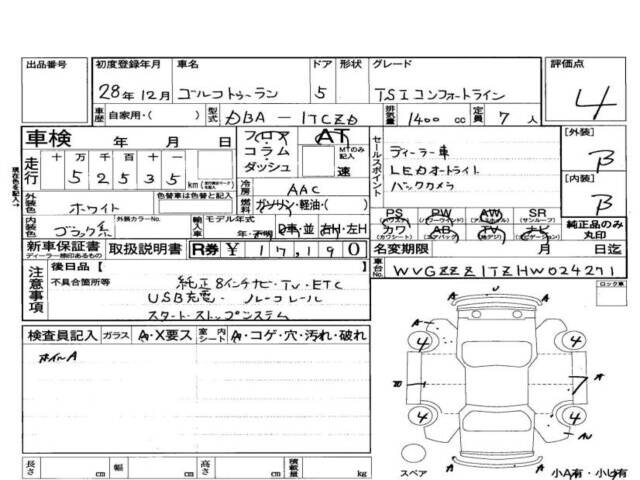 出品番号 初度登録年月 車名 ドア 形状 グレード 評価点
28年12月 ゴルフトゥーラン 5 TSIコンフォートライン 4
車歴 自家用・( ) 型式 DBA-1TCZD 排気量 1400 cc 定員 7 人
車検 年 月 日 フロア コラム ダッシュ AT MTのみ記入 速
走行 十 万 千 百 十 一
5 2 5 3 5 km
セールスポイント
ディーラー車
LEDオートライト
バックカメラ
[外装] B
[内装] B
外装色 ホワイト 色替車は色替と記入 冷房 AAC
燃料 ガソリン・軽油・( )
PS PW AW SR
(パワーウインドウ) (サンルーフ)
カワ AB TV ナビ
(カワシート) (エアバック) (ナビゲーション)
純正品のみ丸印
内装色 ブラック系 外装カラーNo. 輸入車 モデル年式 年・ D車・並 右H・左H
新車保証書 取扱説明書 R券 ¥17,190 名変期限 月 日迄
ディーラー捺印あるもの
車台No. WVGZZZ1TZHW024271
注意事項
後日品[ ]
不具合箇所等 純正8インチナビ・TV・ETC
USB充電・ルーフレール
スタートストップシステム
ロック車
検査員記入 ガラス A・X要ス 室内シート A・コゲ・穴・汚れ・破れ
ホイルA
U A A
4 4
7 A
4 4
A AU
A A
長さ cm 幅 cm 高さ cm 積載量 kg
スペア
小A有・小U有